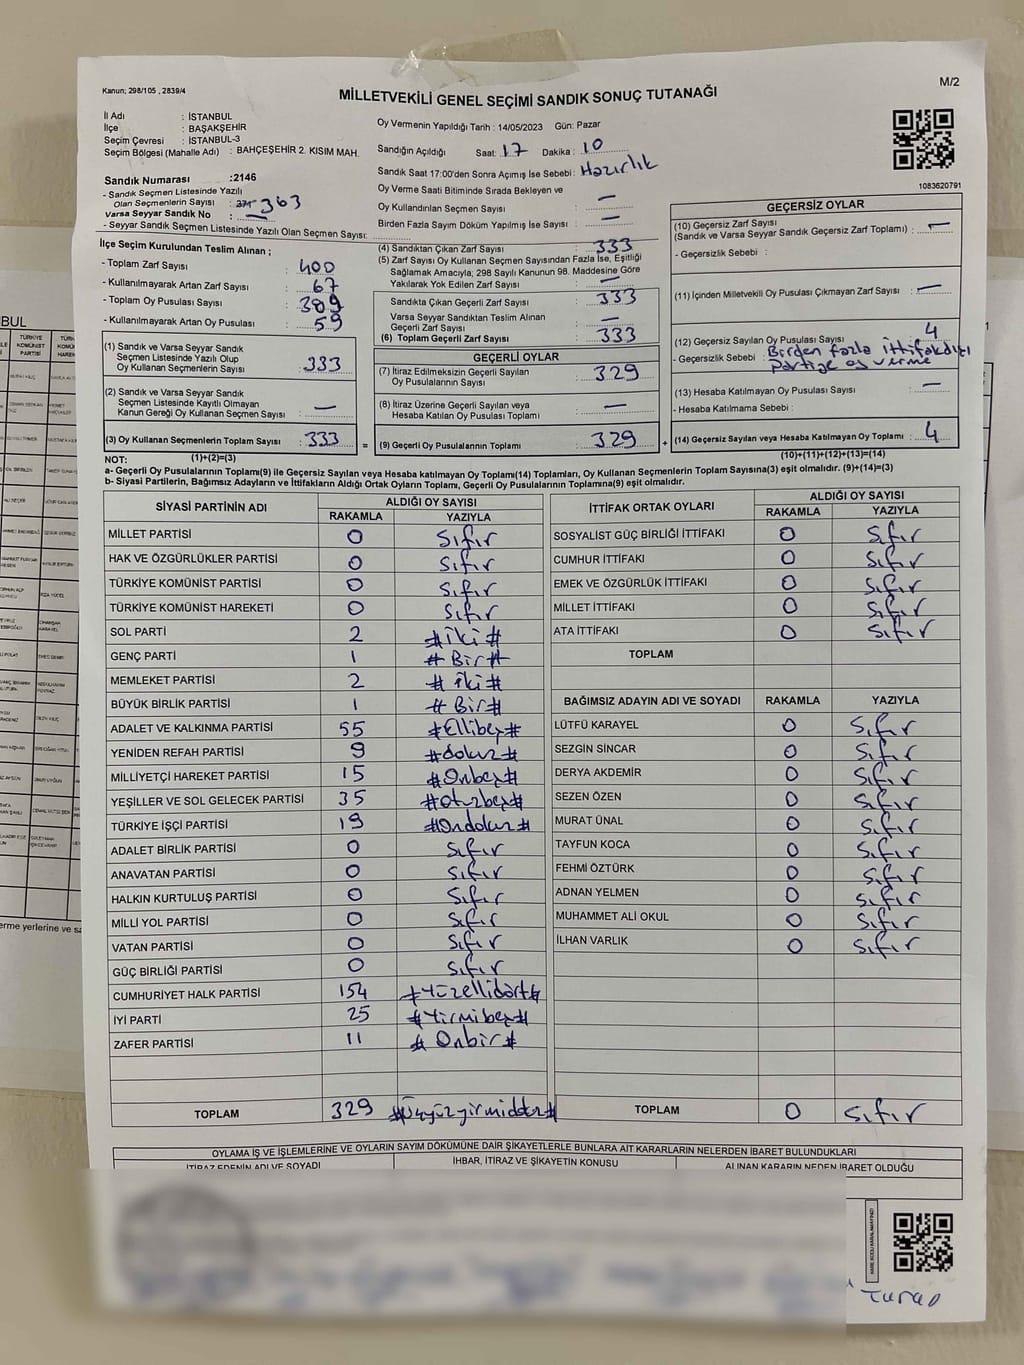 Kanun; 298/105 , 2839/4
MİLLETVEKİLİ GENEL SEÇİMİ SANDIK SONUÇ TUTANAĞI
M/2
İl Adı : İSTANBUL
İlçe : BAŞAKŞEHİR
Seçim Çevresi : İSTANBUL-3
Seçim Bölgesi (Mahalle Adı) : BAHÇEŞEHİR 2. KISIM MAH.
Oy Vermenin Yapıldığı Tarih : 14/05/2023 Gün: Pazar
Sandığın Açıldığı Saat: 17 Dakika : 10
Sandık Saat 17:00'den Sonra Açmış İse Sebebi : Hazırlık
Oy Verme Saati Bitiminde Sırada Bekleyen ve
Oy Kullandırılan Seçmen Sayısı : —
Birden Fazla Sayım Döküm Yapılmış İse Sayısı : —
1083620791
Sandık Numarası :2146
- Sandık Seçmen Listesinde Yazılı
Olan Seçmenlerin Sayısı : 371 363
Varsa Seyyar Sandık No : —
- Seyyar Sandık Seçmen Listesinde Yazılı Olan Seçmen Sayısı:
İlçe Seçim Kurulundan Teslim Alınan ;
- Toplam Zarf Sayısı : 400
- Kullanılmayarak Artan Zarf Sayısı : 67
- Toplam Oy Pusulası Sayısı : 389
- Kullanılmayarak Artan Oy Pusulası : 59
(1) Sandık ve Varsa Seyyar Sandık
Seçmen Listesinde Yazılı Olup
Oy Kullanan Seçmenlerin Sayısı : 333
(2) Sandık ve Varsa Seyyar Sandık
Seçmen Listesinde Kayıtlı Olmayan
Kanun Gereği Oy Kullanan Seçmen Sayısı : —
(3) Oy Kullanan Seçmenlerin Toplam Sayısı : 333 =
(1)+(2)=(3)
(4) Sandıktan Çıkan Zarf Sayısı : 333
(5) Zarf Sayısı Oy Kullanan Seçmen Sayısından Fazla İse, Eşitliği
Sağlamak Amacıyla; 298 Sayılı Kanunun 98. Maddesine Göre
Yakılarak Yok Edilen Zarf Sayısı : —
Sandıkta Çıkan Geçerli Zarf Sayısı : 333
Varsa Seyyar Sandıktan Teslim Alınan
Geçerli Zarf Sayısı : —
(6) Toplam Geçerli Zarf Sayısı : 333
GEÇERLİ OYLAR
(7) İtiraz Edilmeksizin Geçerli Sayılan
Oy Pusulalarının Sayısı : 329
(8) İtiraz Üzerine Geçerli Sayılan veya
Hesaba Katılan Oy Pusulası Toplamı : —
(9) Geçerli Oy Pusulalarının Toplamı : 329 +
GEÇERSİZ OYLAR
(10) Geçersiz Zarf Sayısı
(Sandık ve Varsa Seyyar Sandık Geçersiz Zarf Toplamı) : —
- Geçersizlik Sebebi :
(11) İçinden Milletvekili Oy Pusulası Çıkmayan Zarf Sayısı : —
(12) Geçersiz Sayılan Oy Pusulası Sayısı : 4
- Geçersizlik Sebebi : Birden fazla ittifakdışı
Partiye oy verme
(13) Hesaba Katılmayan Oy Pusulası Sayısı : —
- Hesaba Katılmama Sebebi :
(14) Geçersiz Sayılan veya Hesaba Katılmayan Oy Toplamı : 4
(10)+(11)+(12)+(13)=(14)
NOT:
a- Geçerli Oy Pusulalarının Toplamı(9) ile Geçersiz Sayılan veya Hesaba katılmayan Oy Toplamı(14) Toplamları, Oy Kullanan Seçmenlerin Toplam Sayısına(3) eşit olmalıdır. (9)+(14)=(3)
b- Siyasi Partilerin, Bağımsız Adayların ve İttifakların Aldığı Ortak Oyların Toplamı, Geçerli Oy Pusulalarının Toplamına(9) eşit olmalıdır.
SİYASİ PARTİNİN ADI ALDIĞI OY SAYISI
RAKAMLA YAZIYLA
MİLLET PARTİSİ 0 Sıfır
HAK VE ÖZGÜRLÜKLER PARTİSİ 0 Sıfır
TÜRKİYE KOMÜNİST PARTİSİ 0 Sıfır
TÜRKİYE KOMÜNİST HAREKETİ 0 Sıfır
SOL PARTİ 2 #iki#
GENÇ PARTİ 1 #Bir#
MEMLEKET PARTİSİ 2 #iki#
BÜYÜK BİRLİK PARTİSİ 1 #Bir#
ADALET VE KALKINMA PARTİSİ 55 #Ellibeş#
YENİDEN REFAH PARTİSİ 9 #dokuz#
MİLLİYETÇİ HAREKET PARTİSİ 15 #Onbeş#
YEŞİLLER VE SOL GELECEK PARTİSİ 35 #otuzbeş#
TÜRKİYE İŞÇİ PARTİSİ 19 #Ondokuz#
ADALET BİRLİK PARTİSİ 0 Sıfır
ANAVATAN PARTİSİ 0 Sıfır
HALKIN KURTULUŞ PARTİSİ 0 Sıfır
MİLLİ YOL PARTİSİ 0 Sıfır
VATAN PARTİSİ 0 Sıfır
GÜÇ BİRLİĞİ PARTİSİ 0 Sıfır
CUMHURİYET HALK PARTİSİ 154 #Yüzellidört#
İYİ PARTİ 25 #Yirmibeş#
ZAFER PARTİSİ 11 #Onbir#
TOPLAM 329 #Üçyüzyirmidokuz#
İTTİFAK ORTAK OYLARI ALDIĞI OY SAYISI
RAKAMLA YAZIYLA
SOSYALİST GÜÇ BİRLİĞİ İTTİFAKI 0 Sıfır
CUMHUR İTTİFAKI 0 Sıfır
EMEK VE ÖZGÜRLÜK İTTİFAKI 0 Sıfır
MİLLET İTTİFAKI 0 Sıfır
ATA İTTİFAKI 0 Sıfır
TOPLAM
BAĞIMSIZ ADAYIN ADI VE SOYADI RAKAMLA YAZIYLA
LÜTFÜ KARAYEL 0 Sıfır
SEZGİN SİNCAR 0 Sıfır
DERYA AKDEMİR 0 Sıfır
SEZEN ÖZEN 0 Sıfır
MURAT ÜNAL 0 Sıfır
TAYFUN KOCA 0 Sıfır
FEHMİ ÖZTÜRK 0 Sıfır
ADNAN YELMEN 0 Sıfır
MUHAMMET ALİ OKUL 0 Sıfır
İLHAN VARLIK 0 Sıfır
TOPLAM 0 Sıfır
OYLAMA İŞ VE İŞLEMLERİNE VE OYLARIN SAYIM DÖKÜMÜNE DAİR ŞİKAYETLERLE BUNLARA AİT KARARLARIN NELERDEN İBARET BULUNDUKLARI
İTİRAZ EDENİN ADI VE SOYADI İHBAR, İTİRAZ VE ŞİKAYETİN KONUSU ALINAN KARARIN NEDEN İBARET OLDUĞU